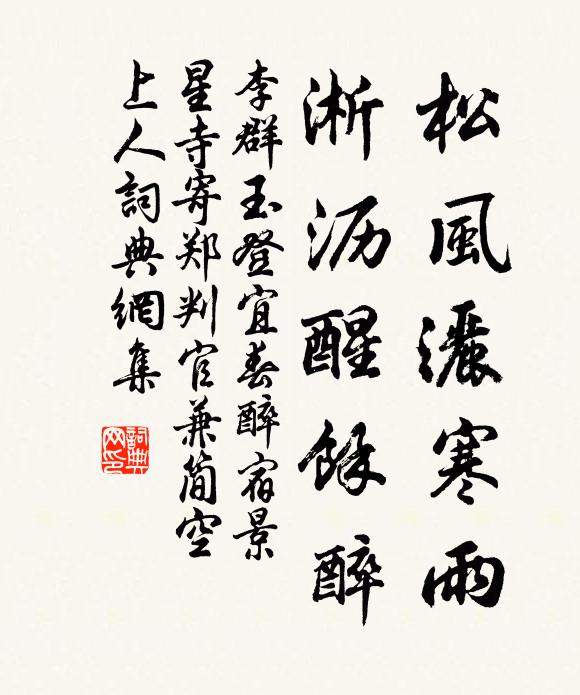 松風灑寒雨
淅沥醒餘醉
李群玉登宜春醉宿景
星寺寄郑判官兼简空
上人詞典網集
詞典
网印